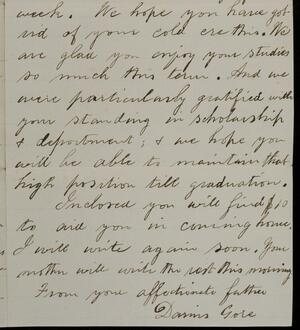 week. We hope you have got
rid of your cold ere this. We
are glad you enjoy your studies
so much this term. And we
were particularly gratified with
your standing in scholarship
& deportment; & we hope you
will be able to maintain that
high position till graduation.
Inclosed you will find $10
to aid you in coming home.
I will write again soon. Your
mother will write the rest this morning
From your affectionate father
Darius Gore